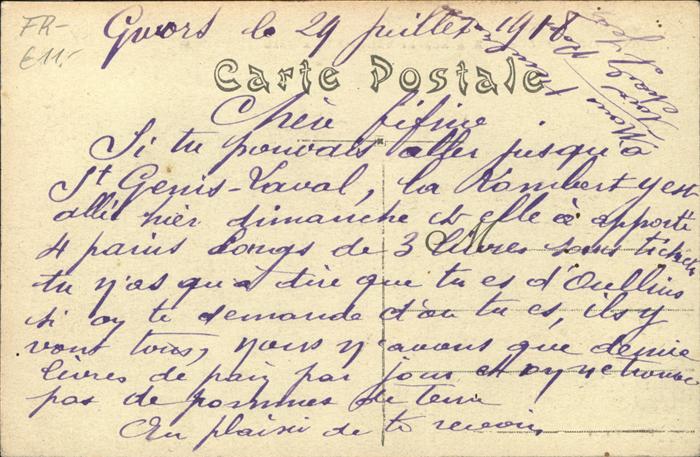 FR-
€11,-
Givors le 29 juillet 1918
Carte Postale
Chère Fifine
Si tu pouvais aller jusqu'a
St Genis-Laval, la Rambert y est
allé hier dimanche et elle à apporté
4 pains longs de 3 livres sans tickets
tu n'as qu'à dire que tu es d'Oullins
si on te demande d'ou tu es, ils y
vont tous, nous n'avons que demie
livres de pain par jour et on ne trouve
pas de pommes de terre
Au plaisir de te revoir